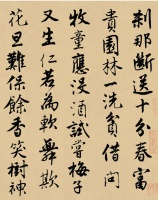 刹那斷送十分春富
貴園林一洗貧借問
牧童應沒酒試嘗梅子
又生仁若為軟舞欺
花旦難保餘香笑樹神